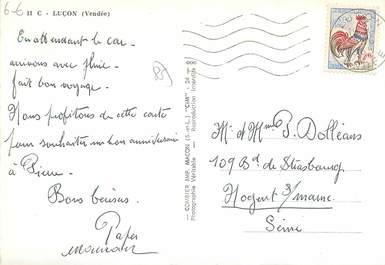 6-6 H C - LUÇON (Vendée)
En attendant le car -
arrivons avec pluie -
fait bon voyage -
Nous profitons de cette carte
pour souhaiter un bon anniversaire
à Pierre -
Bons baisers
Papa
85
COMBIER IMP. MACON (S.-et-L.) "CIM"
Photographie Véritable - Reproduction Interdite
Mr et Mme P. Dolléans
109 Bd de Strasbourg
Nogent s/marne
Seine